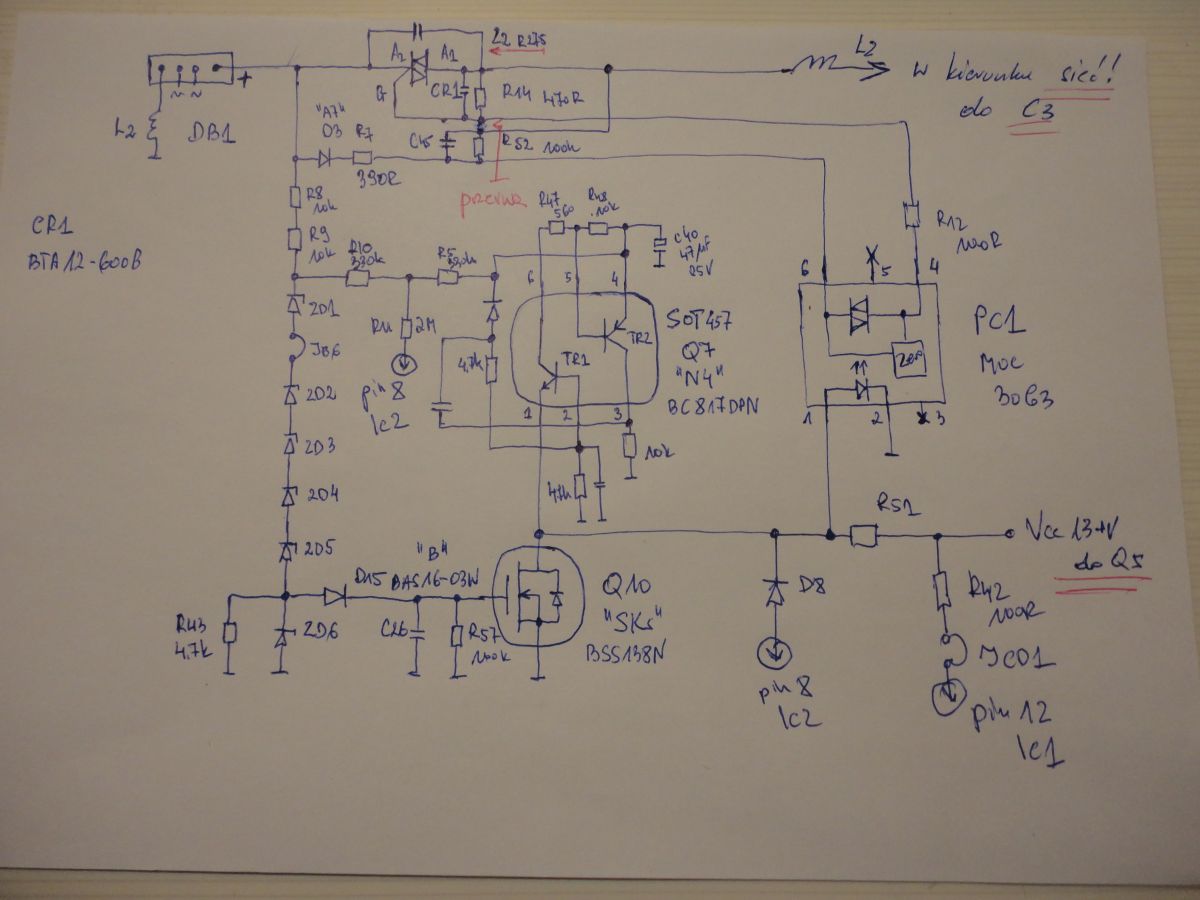 L2
R275
A2
A1
+
~ ~
G
CR1
R14 470R
L2
w kierunku sieć!!
do C3
L2
DB1
"A7"
D3
R7
390R
C15
R52 100k
przerwa
CR1
BTA12-600B
R8
10k
R9
10k
R10
330k
R47
560
R48
10k
C40
47µF
25V
R12
100R
6
5
4
6
5
4
ZD1
JB6
R11
2M
pin 8
IC2
4,7k
TR1
TR2
SOT457
Q7
"N4"
BC817DPN
PC1
MOC
3063
ZD2
1
2
3
1
2
3
ZD3
10k
ZD4
47k
R51
Vcc 13+V
do Q5
ZD5
"B"
D15
BAS16-03W
Q10
"SKs"
BSS138N
D8
R42
100R
R43
4.7k
ZD6
C26
R57
100k
JC01
pin 8
IC2
pin 12
IC1